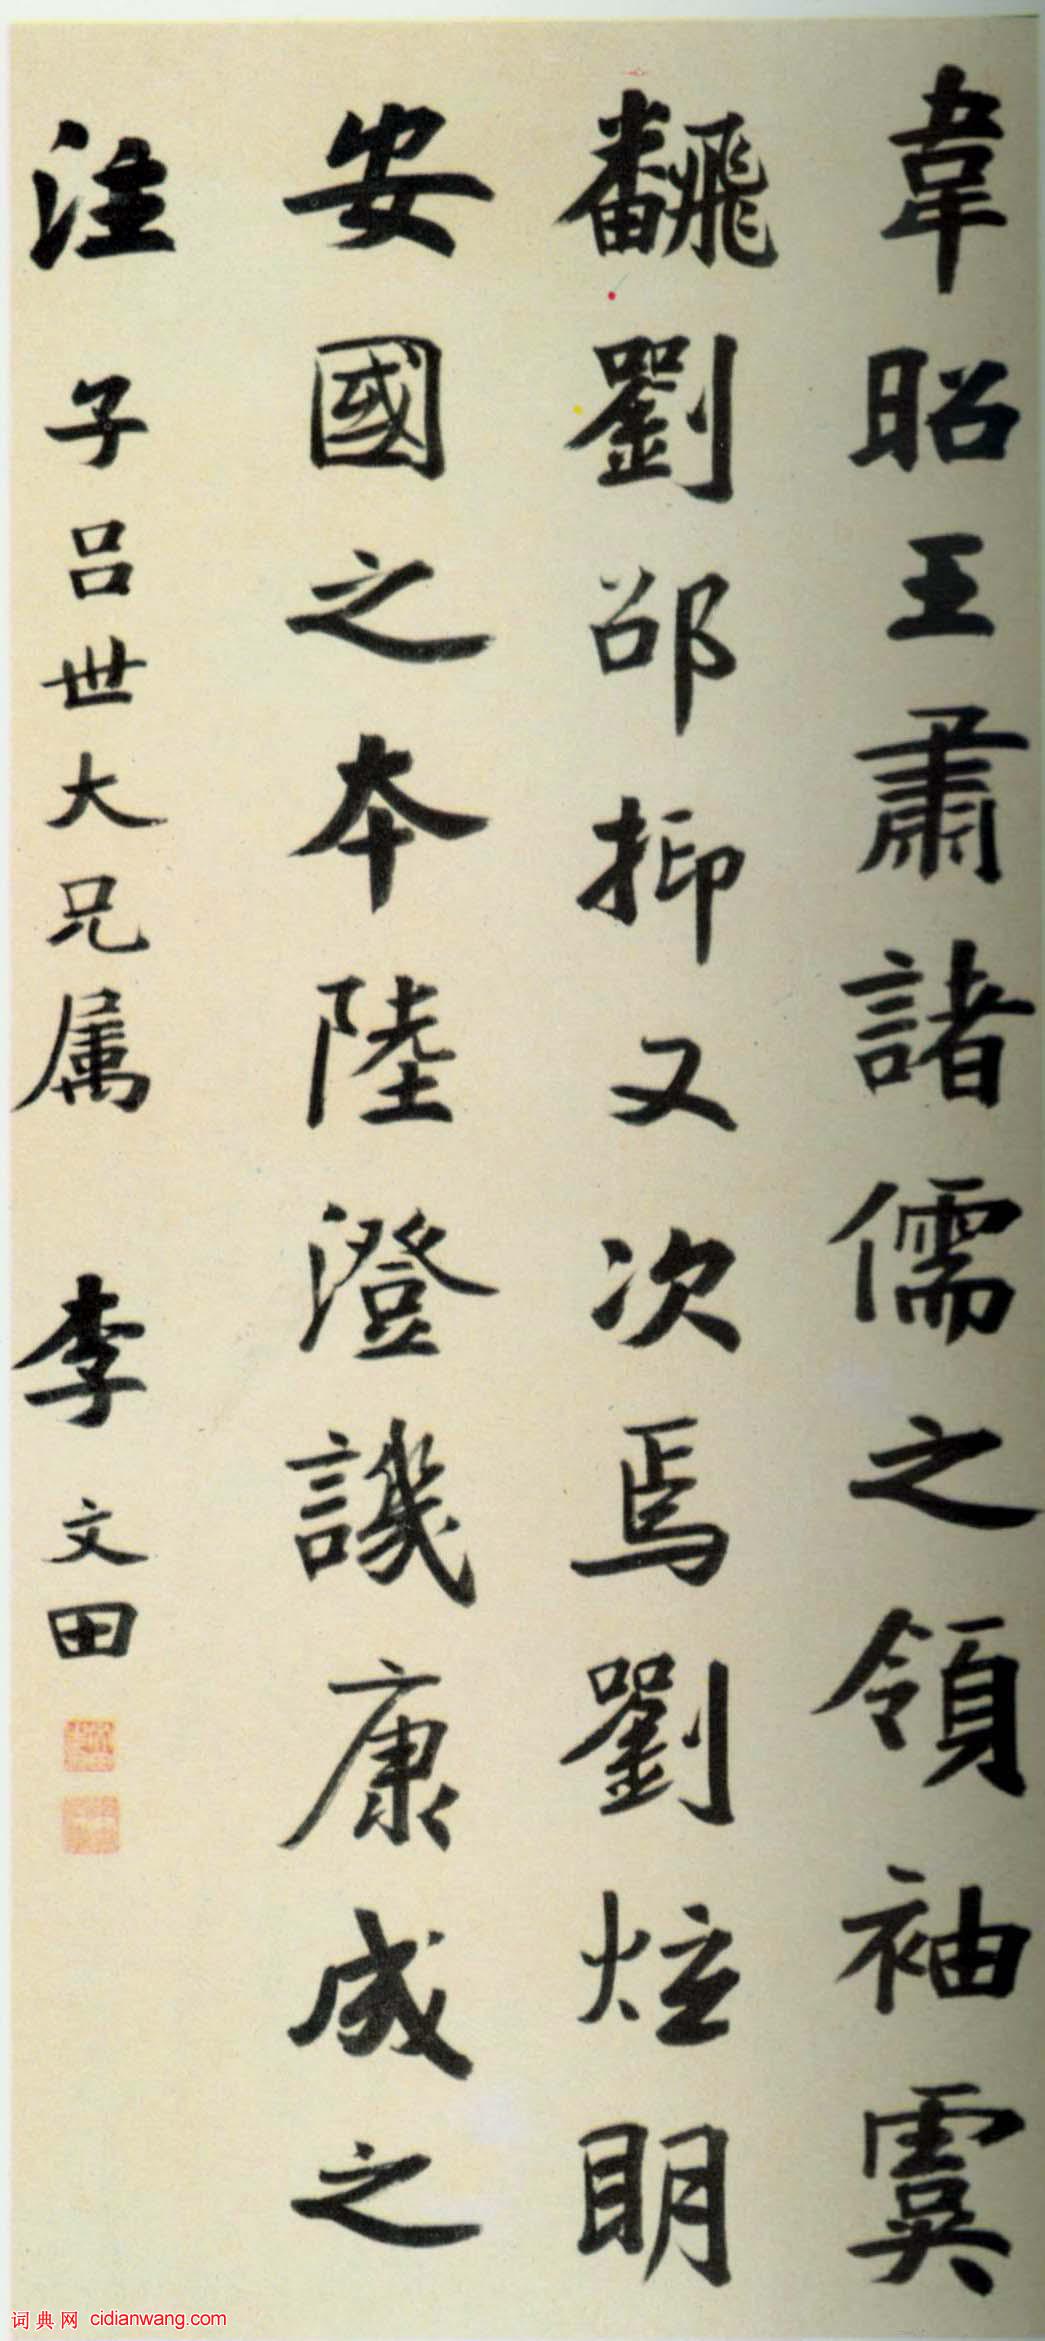 韋昭王肅諸儒之領袖虞
飜劉邵抑又次焉劉炫明
安國之本陸澄譏康成之
注 子呂世大兄属 李文田
词典网 cidianwang.com